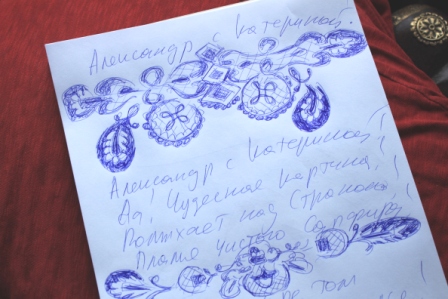 Александр с Катериной!
Александр с Катериной!
Да! Чудесная картина!
Полыхает над Страной,
Пламя чистого Сапфира!